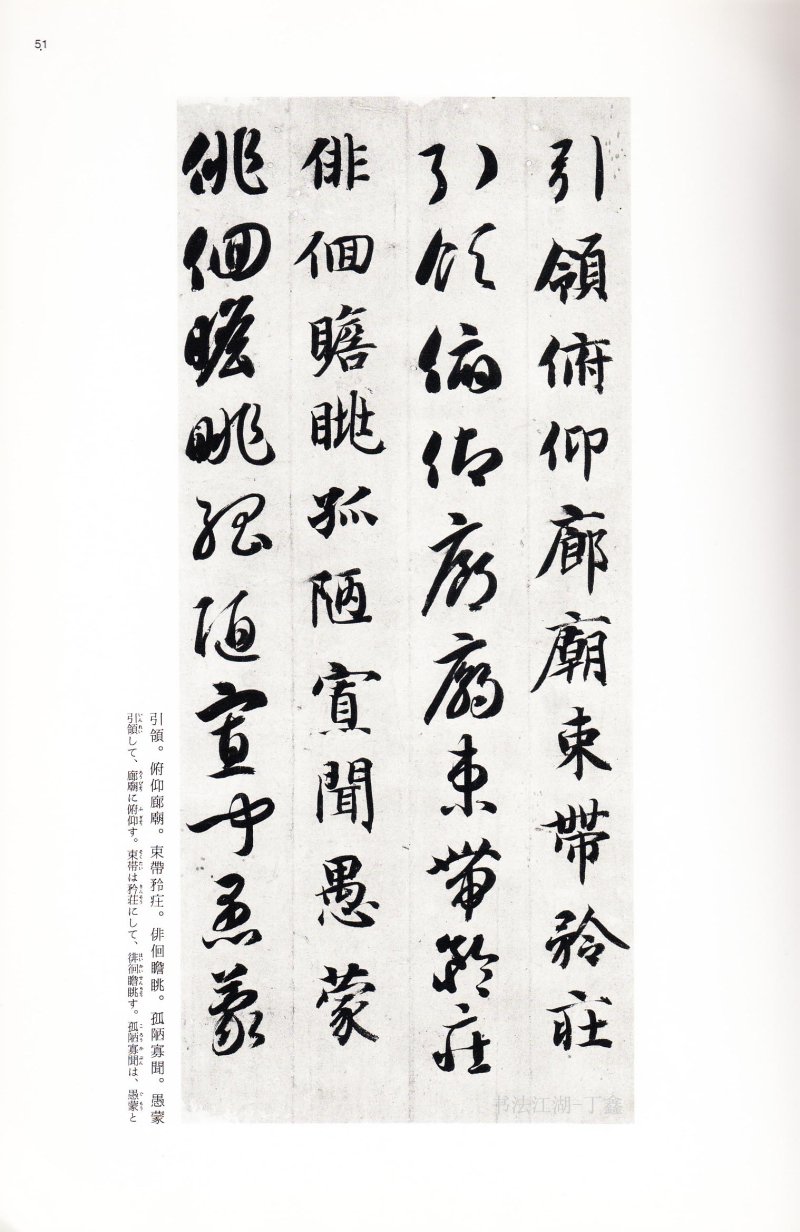 51
引領俯仰廊廟束帶矜庄
引領俯仰廊廟束帶矜庄
俳佪瞻眺孤陋寡聞愚蒙
俳佪瞻眺孤陋寡聞愚蒙
引領。俯仰廊廟。束帶矜庄。俳佪瞻眺。孤陋寡聞。愚蒙
引領して、廊廟に俯仰す。束帯は矜荘にして、徘徊瞻眺す。孤陋寡聞は、愚蒙と
书法江湖-丁鑫